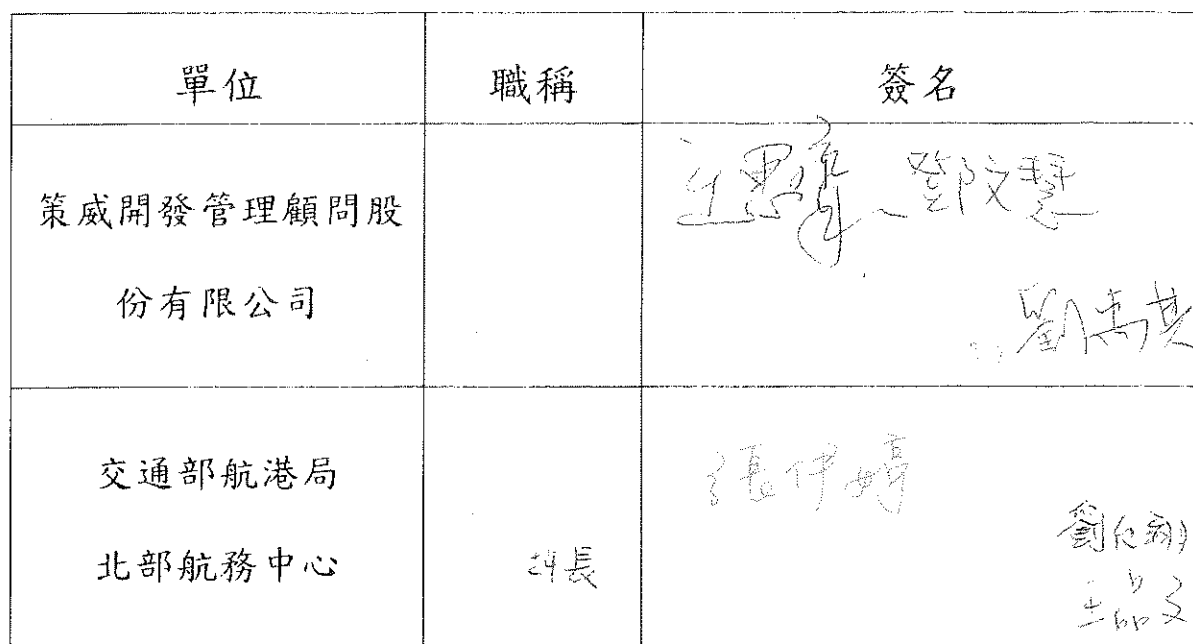 單位 職稱 簽名
策威開發管理顧問股
份有限公司
鄧文慧
交通部航港局
北部航務中心
科長
張伊婷
王品文